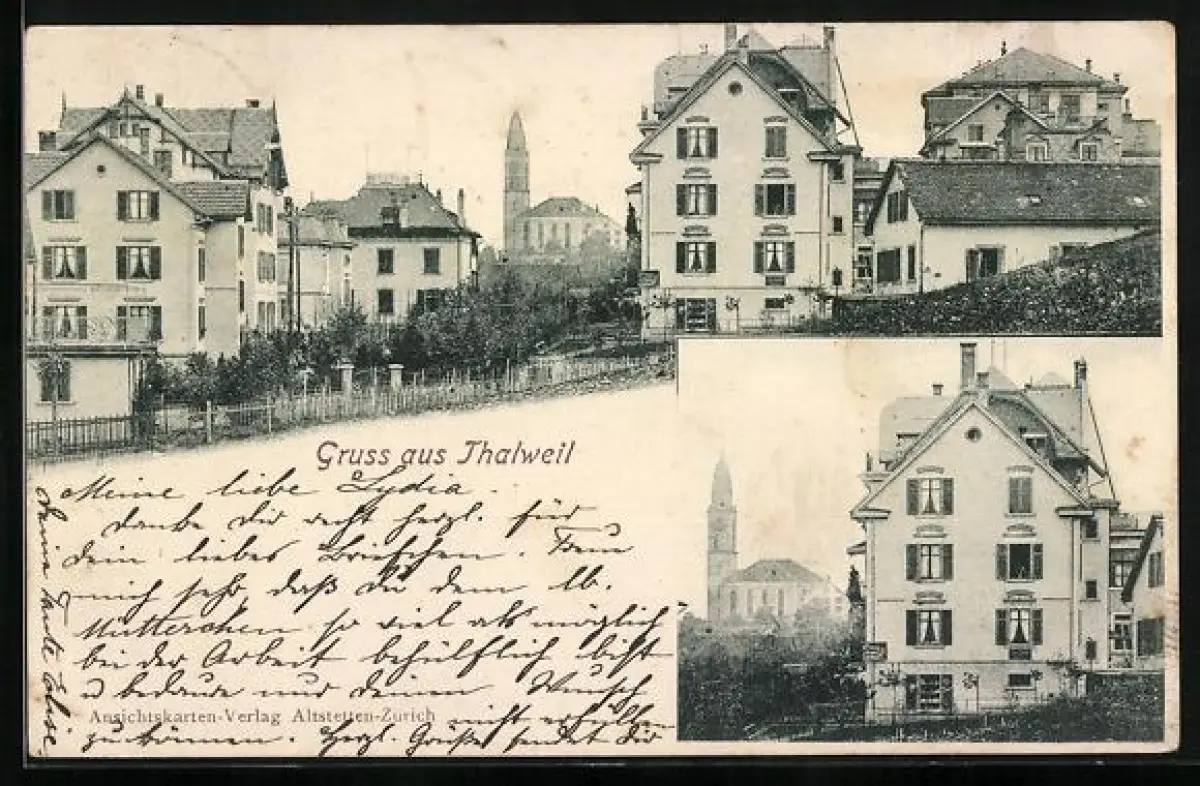 Gruss aus Thalweil
Meine liebe Lydia.
danke dir recht herzl. für
dein liebes Briefchen. Freue
mich sehr daß du dem lb.
Mütterchen so viel als möglich
bei der Arbeit behülflich bist
u bedaure nur deinen Wunsch
nicht erfüllen
Ansichtskarten-Verlag Altstetten-Zürich
zu können. Herzl. Grüße sendet dir
deine Tante Elise